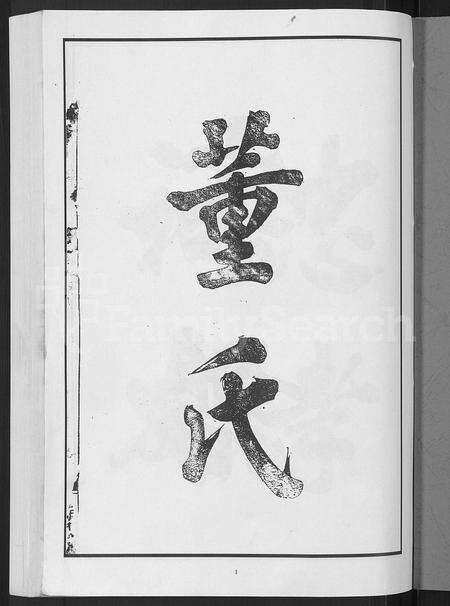 董氏
FamilySearch
1